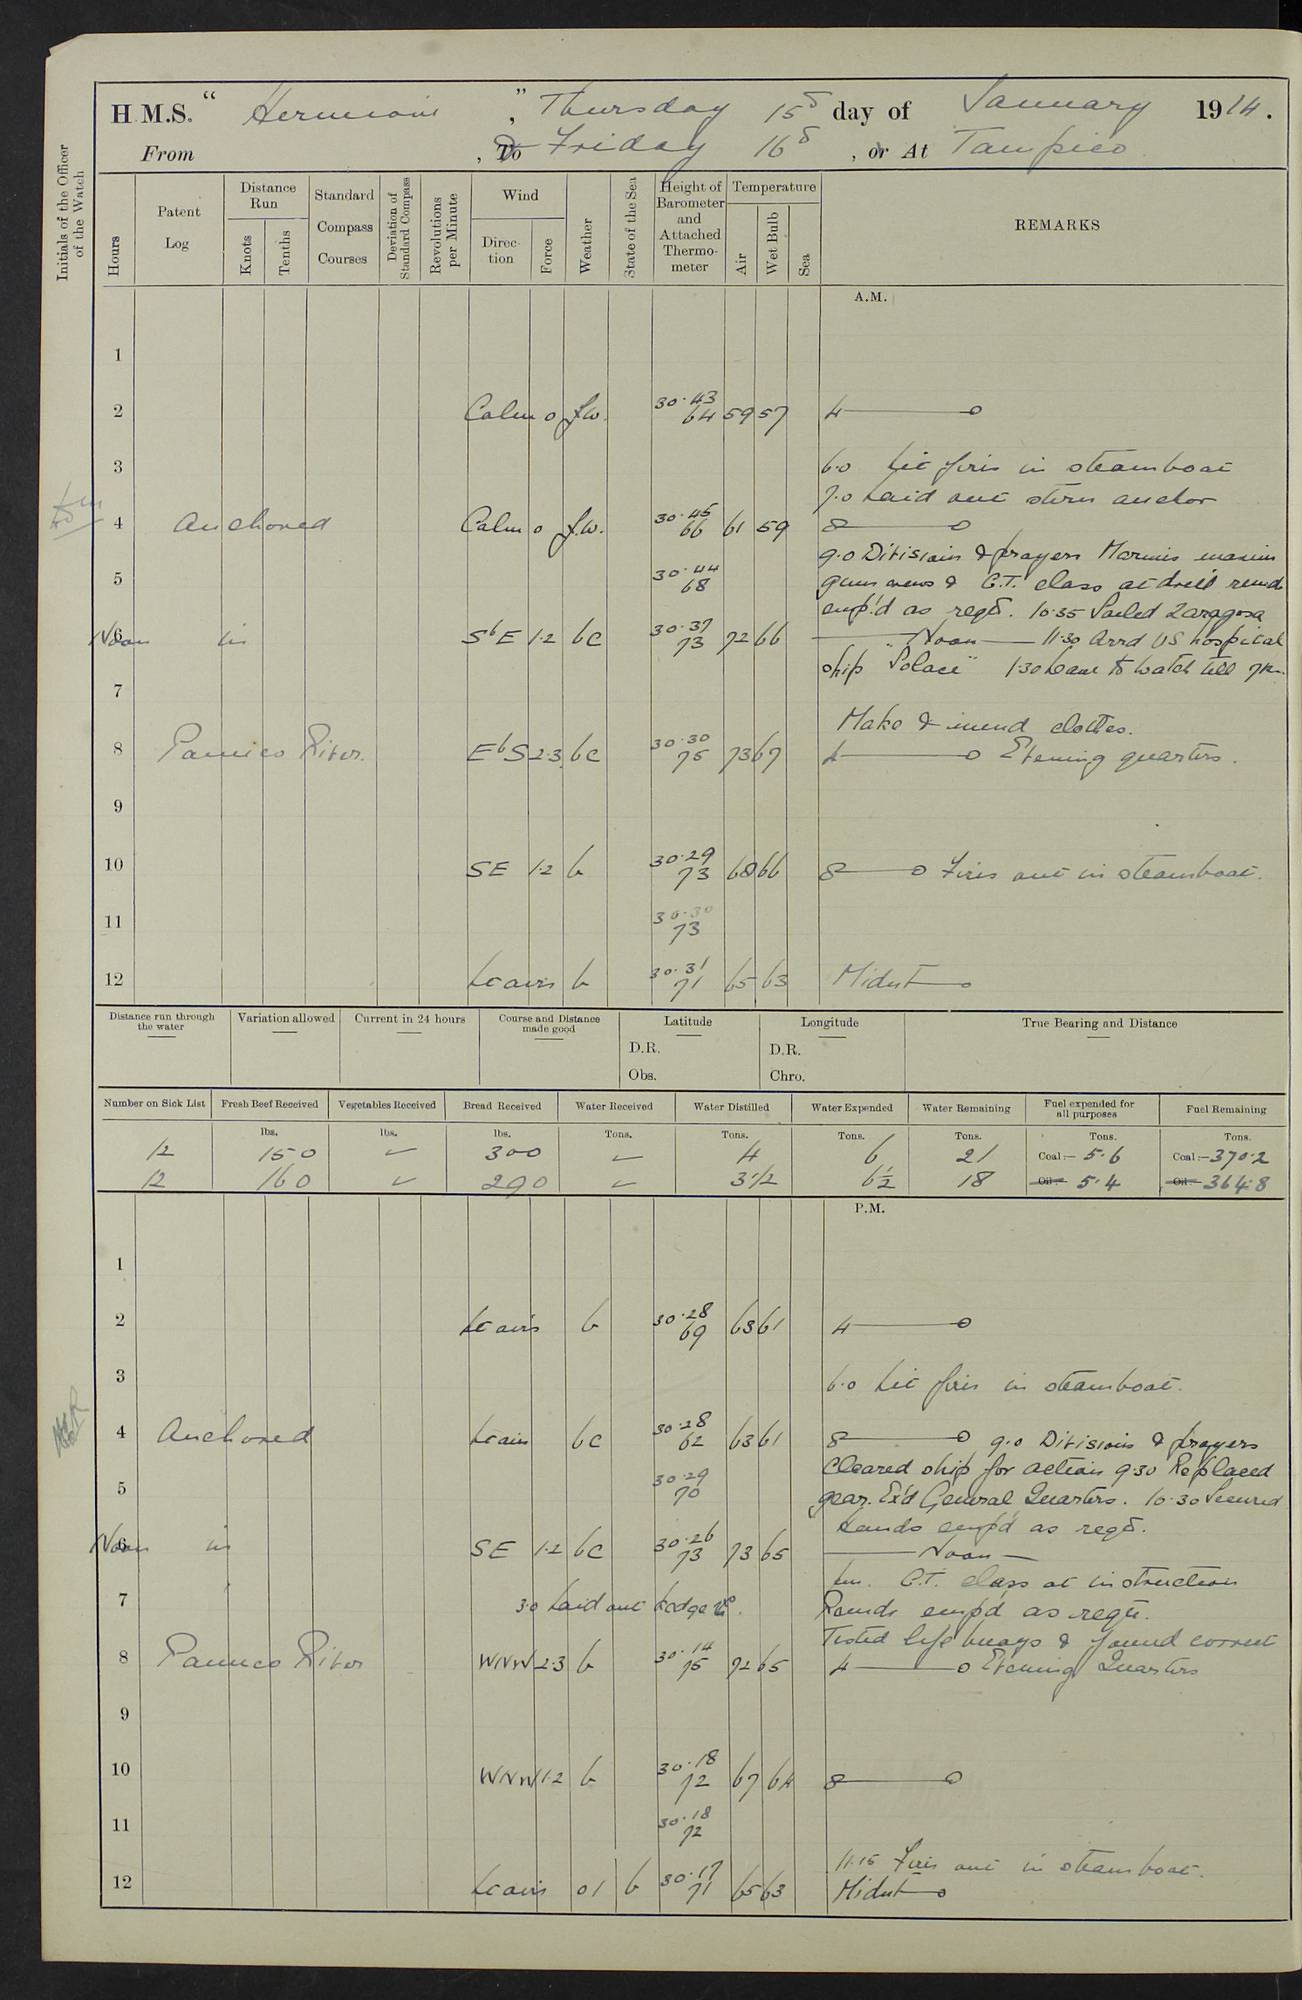 H.M.S. "Hermione", Thursday 15th day of January 1914.
From , To & Friday 16th , or At Tampico
Initials of the Officer of the Watch
Hours
Patent Log
Distance Run
Knots
Tenths
Standard Compass Courses
Deviation of Standard Compass
Revolutions per Minute
Wind
Direction
Force
Weather
State of the Sea
Height of Barometer and Attached Thermometer
Temperature
Air
Wet Bulb
Sea
REMARKS
A.M.
1
2 Calm 0 f.w. 30.43 64 59 57 4
3 6.0 Lit fires in steamboat
7.0 Laid out stern anchor
4 Anchored Calm 0 f.w. 30.45 66 61 59 8
9.0 Divisions & prayers Marines maxim
5 30.44 68 guns crews & G.T. class at drill remdr
emp'd as reqd. 10.35 Sailed Zaragosa
6 Noon in SbE 1.2 bc 30.37 73 72 66 Noon 11.30 Arrd US hospital
ship "Solace" 1.30 Leave to watch till 7 p.m.
7
Make & mend clothes.
8 Panuco River. EbS 2.3 bc 30.30 75 73 67 4 Evening quarters.
9
10 SE 1.2 b 30.29 73 68 66 8 Fires out in steamboat.
11 30.30 73
12 Lt airs b 30.31 71 65 63 Midnt
Distance run through the water
Variation allowed
Current in 24 hours
Course and Distance made good
Latitude
D.R.
Obs.
Longitude
D.R.
Chro.
True Bearing and Distance
Number on Sick List Fresh Beef Received Vegetables Received Bread Received Water Received Water Distilled Water Expended Water Remaining Fuel expended for all purposes Fuel Remaining
lbs. lbs. lbs. Tons. Tons. Tons. Tons. Tons. Tons.
12 150 ✓ 300 ✓ 4 6 21 Coal:- 5.6 Coal:- 370.2
12 160 ✓ 290 ✓ 3 1/2 6 1/2 18 Oil:- 5.4 Oil:- 364.8
P.M.
1
2 Lt airs b 30.28 69 63 61 4
3 6.0 Lit fires in steamboat.
4 Anchored Lt airs bc 30.28 62 63 61 8 9.0 Divisions & prayers
Cleared ship for action 9.30 Replaced
5 30.29 70 gear. Ex'd General Quarters. 10.30 Secured
Hands emp'd as reqd.
6 Noon in SE 1.2 bc 30.26 73 73 65 Noon
G.T. class at instruction
7 3.0 Laid out kedge Remdr emp'd as reqd.
Tested life buoys & found correct
8 Panuco River WNW 2.3 b 30.14 75 72 65 4 Evening Quarters
9
10 WNW 1.2 b 30.18 72 67 64 8
11 30.18 72
11.15 Fires out in steamboat.
12 Lt airs 01 b 30.17 71 65 63 Midnt